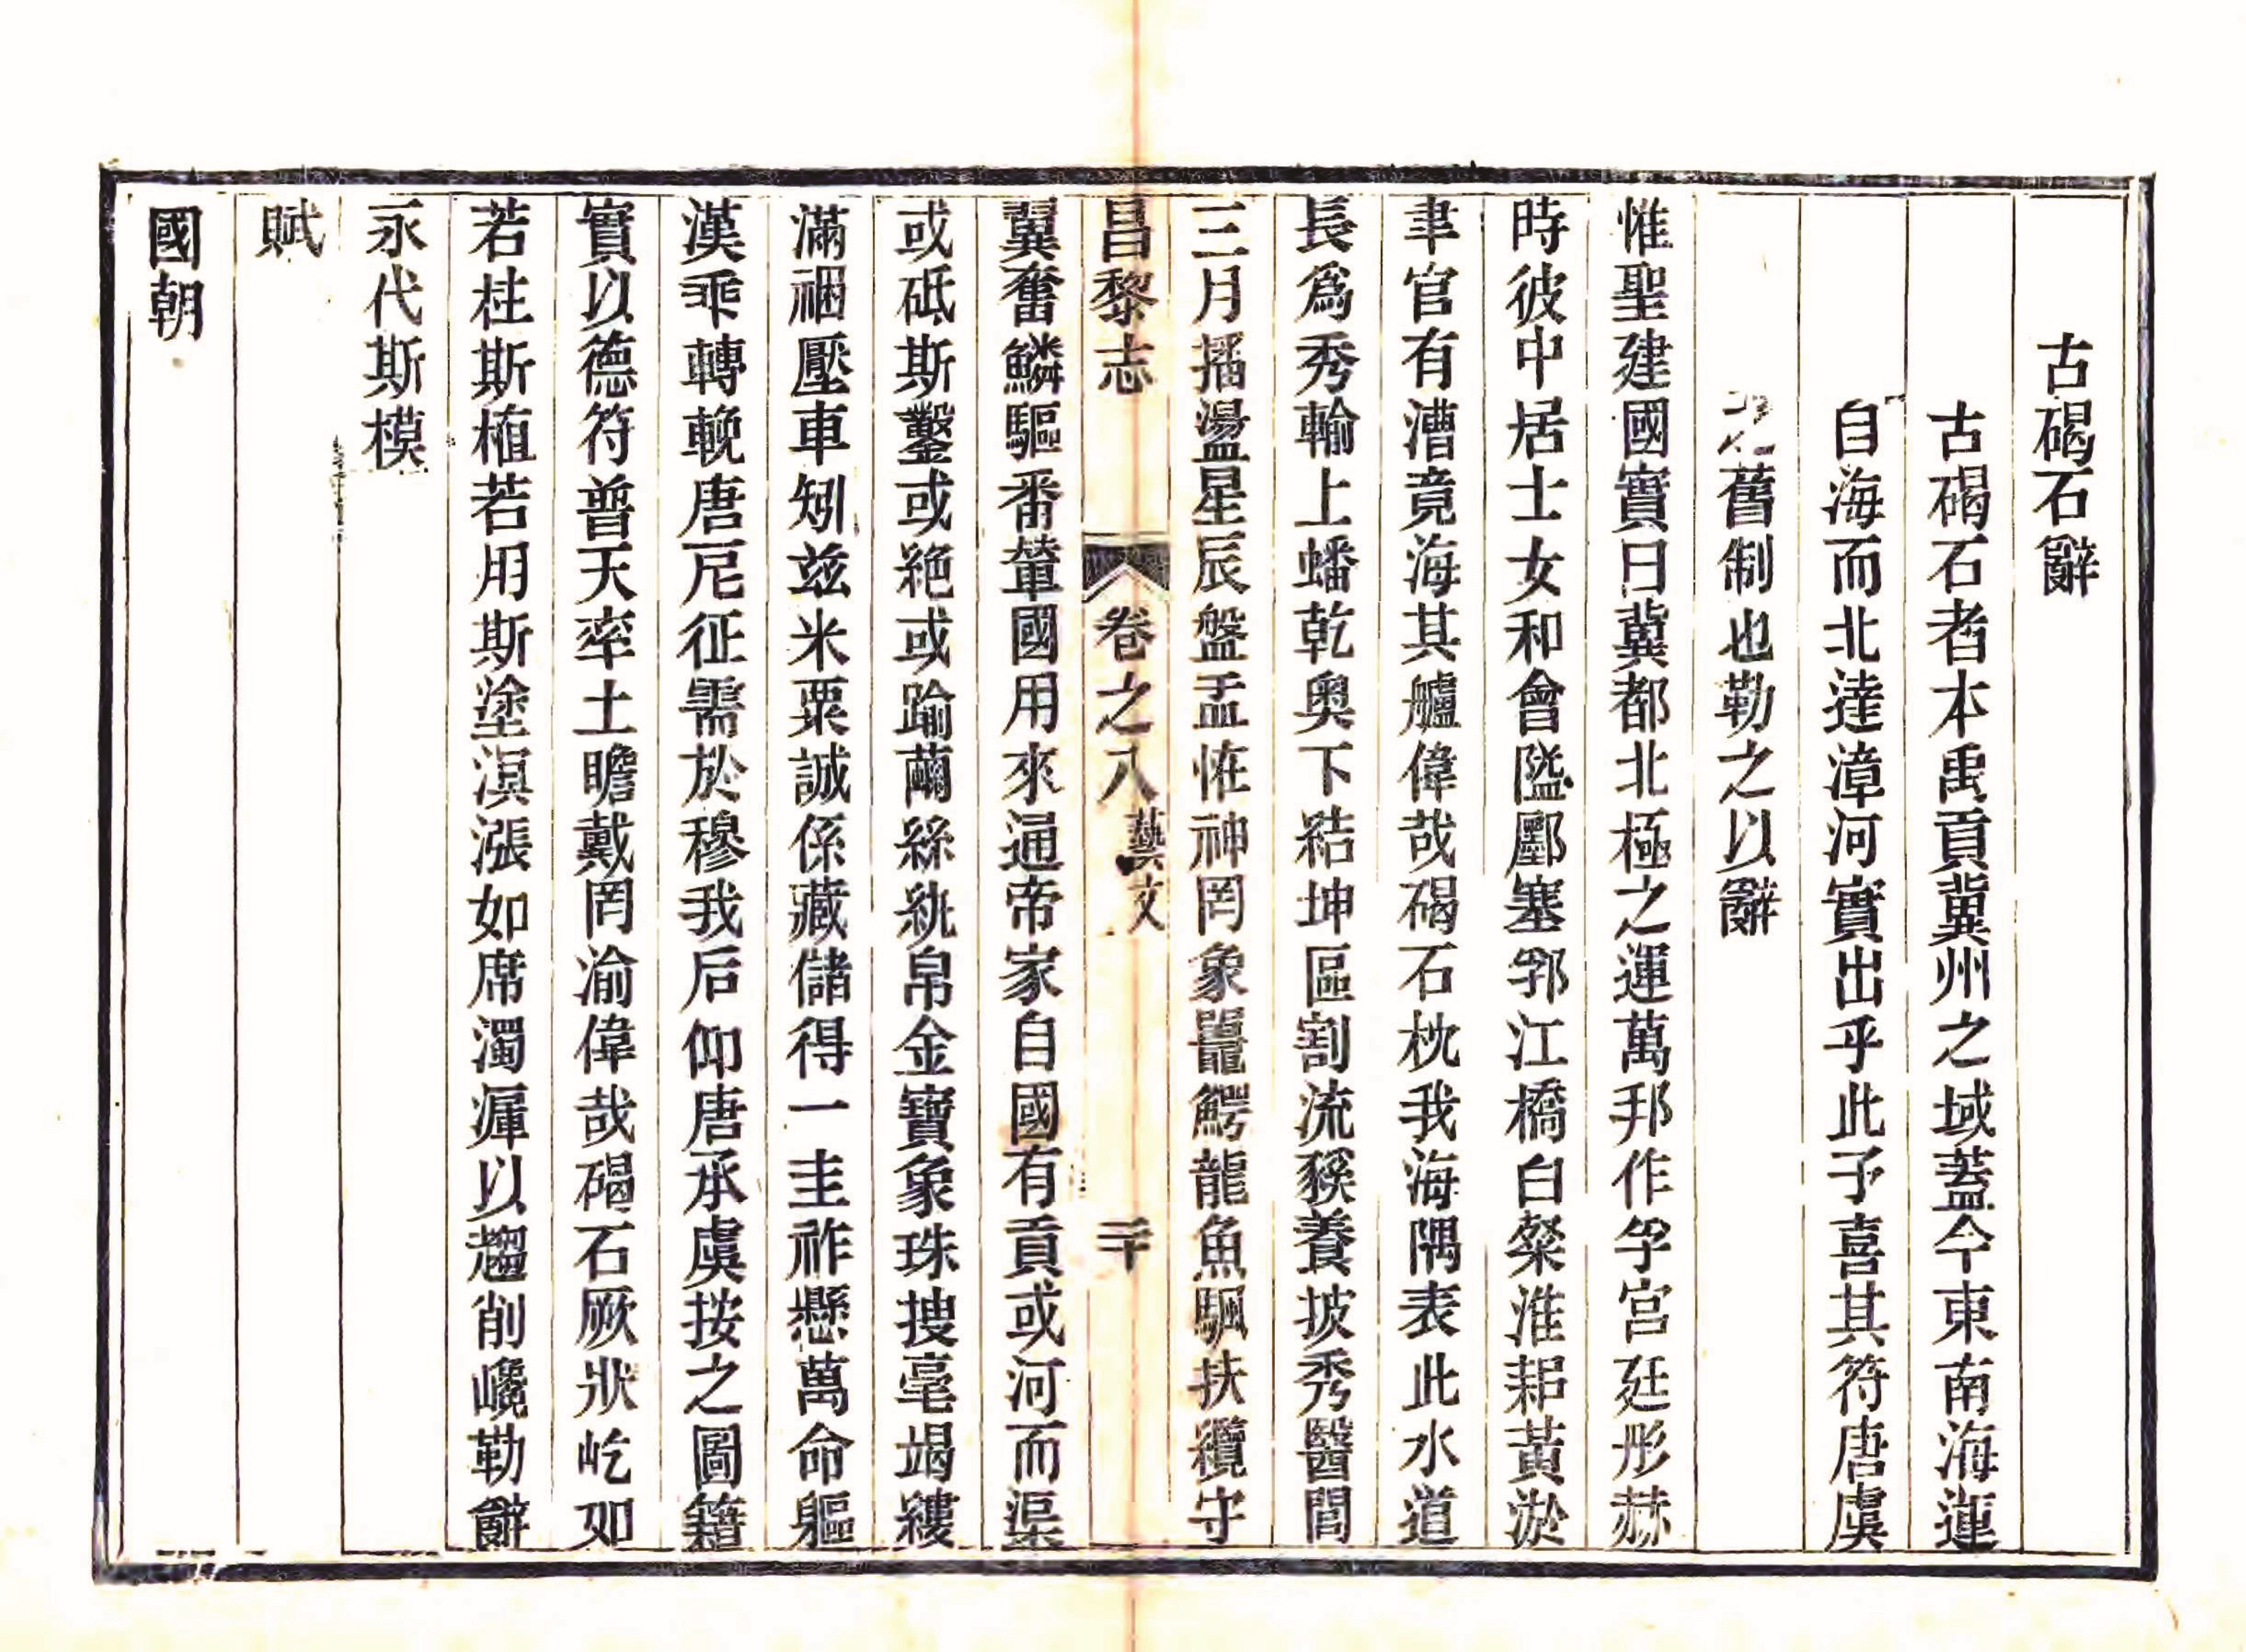 古碣石辭
古碣石者本禹貢冀州之域蓋今東南海運
自海而北達漳河實出乎此予喜其符唐虞
之舊制也勒之以辭
惟聖建國實曰冀都北極之運萬邦作孚宮廷彤赫
時彼中居士女和會隘鄽塞郛江橋白粲淮耜黃淤
聿官有漕竟海其艫偉哉碣石枕我海隅表此水道
長爲秀輸上蟠乾奥下結坤區割流貕養坡秀醫閭
三月播盪星辰盤盂恠神罔象鼉鰐龍魚颿扶纜守
昌黎志 卷之八 藝文 二十
翼奮鱗驅番輦國用來通帝家自國有貢或河而渠
或砥斯鑿或絶或踰繭絲絩帛金寶象珠搜毫竭縷
滿稇壓車矧兹米粟誠係藏儲得一圭祚懸萬命軀
漢乖轉輓唐戹征需於穆我后仰唐承虞按之圖籍
實以德符普天率土瞻戴罔渝偉哉碣石厥狀屹如
若柱斯植若用斯塗溟漲如席濁漘以趨削巉勒辭
永代斯模
賦
國朝